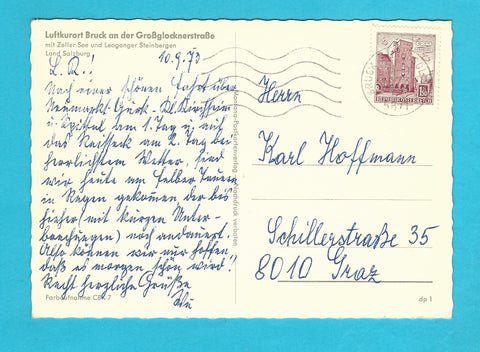 Luftkurort Bruck an der Großglocknerstraße
mit Zeller See und Leoganger Steinbergen
Land Salzburg
10.9.73
L. R.!
Nach einer schönen Fahrt über
Neumarkt-Gurk-Kl. Kirchheim
u. Spittal am 1. Tag u. auf
das Nassfeld am 2. Tag bei
herrlichstem Wetter, sind
wir heute am Felber Tauern
in Regen gekommen, der bis
hieher (mit kurzen Unter-
brechungen) noch andauert.
Also können wir nur hoffen,
daß es morgen schön wird!!
Recht herzliche Grüße
Farbaufnahme CBK 7
Nachdruck verboten
Herrn
Karl Hoffmann
Schillerstraße 35
8010 Graz
REPUBLIK ÖSTERREICH
dp 1